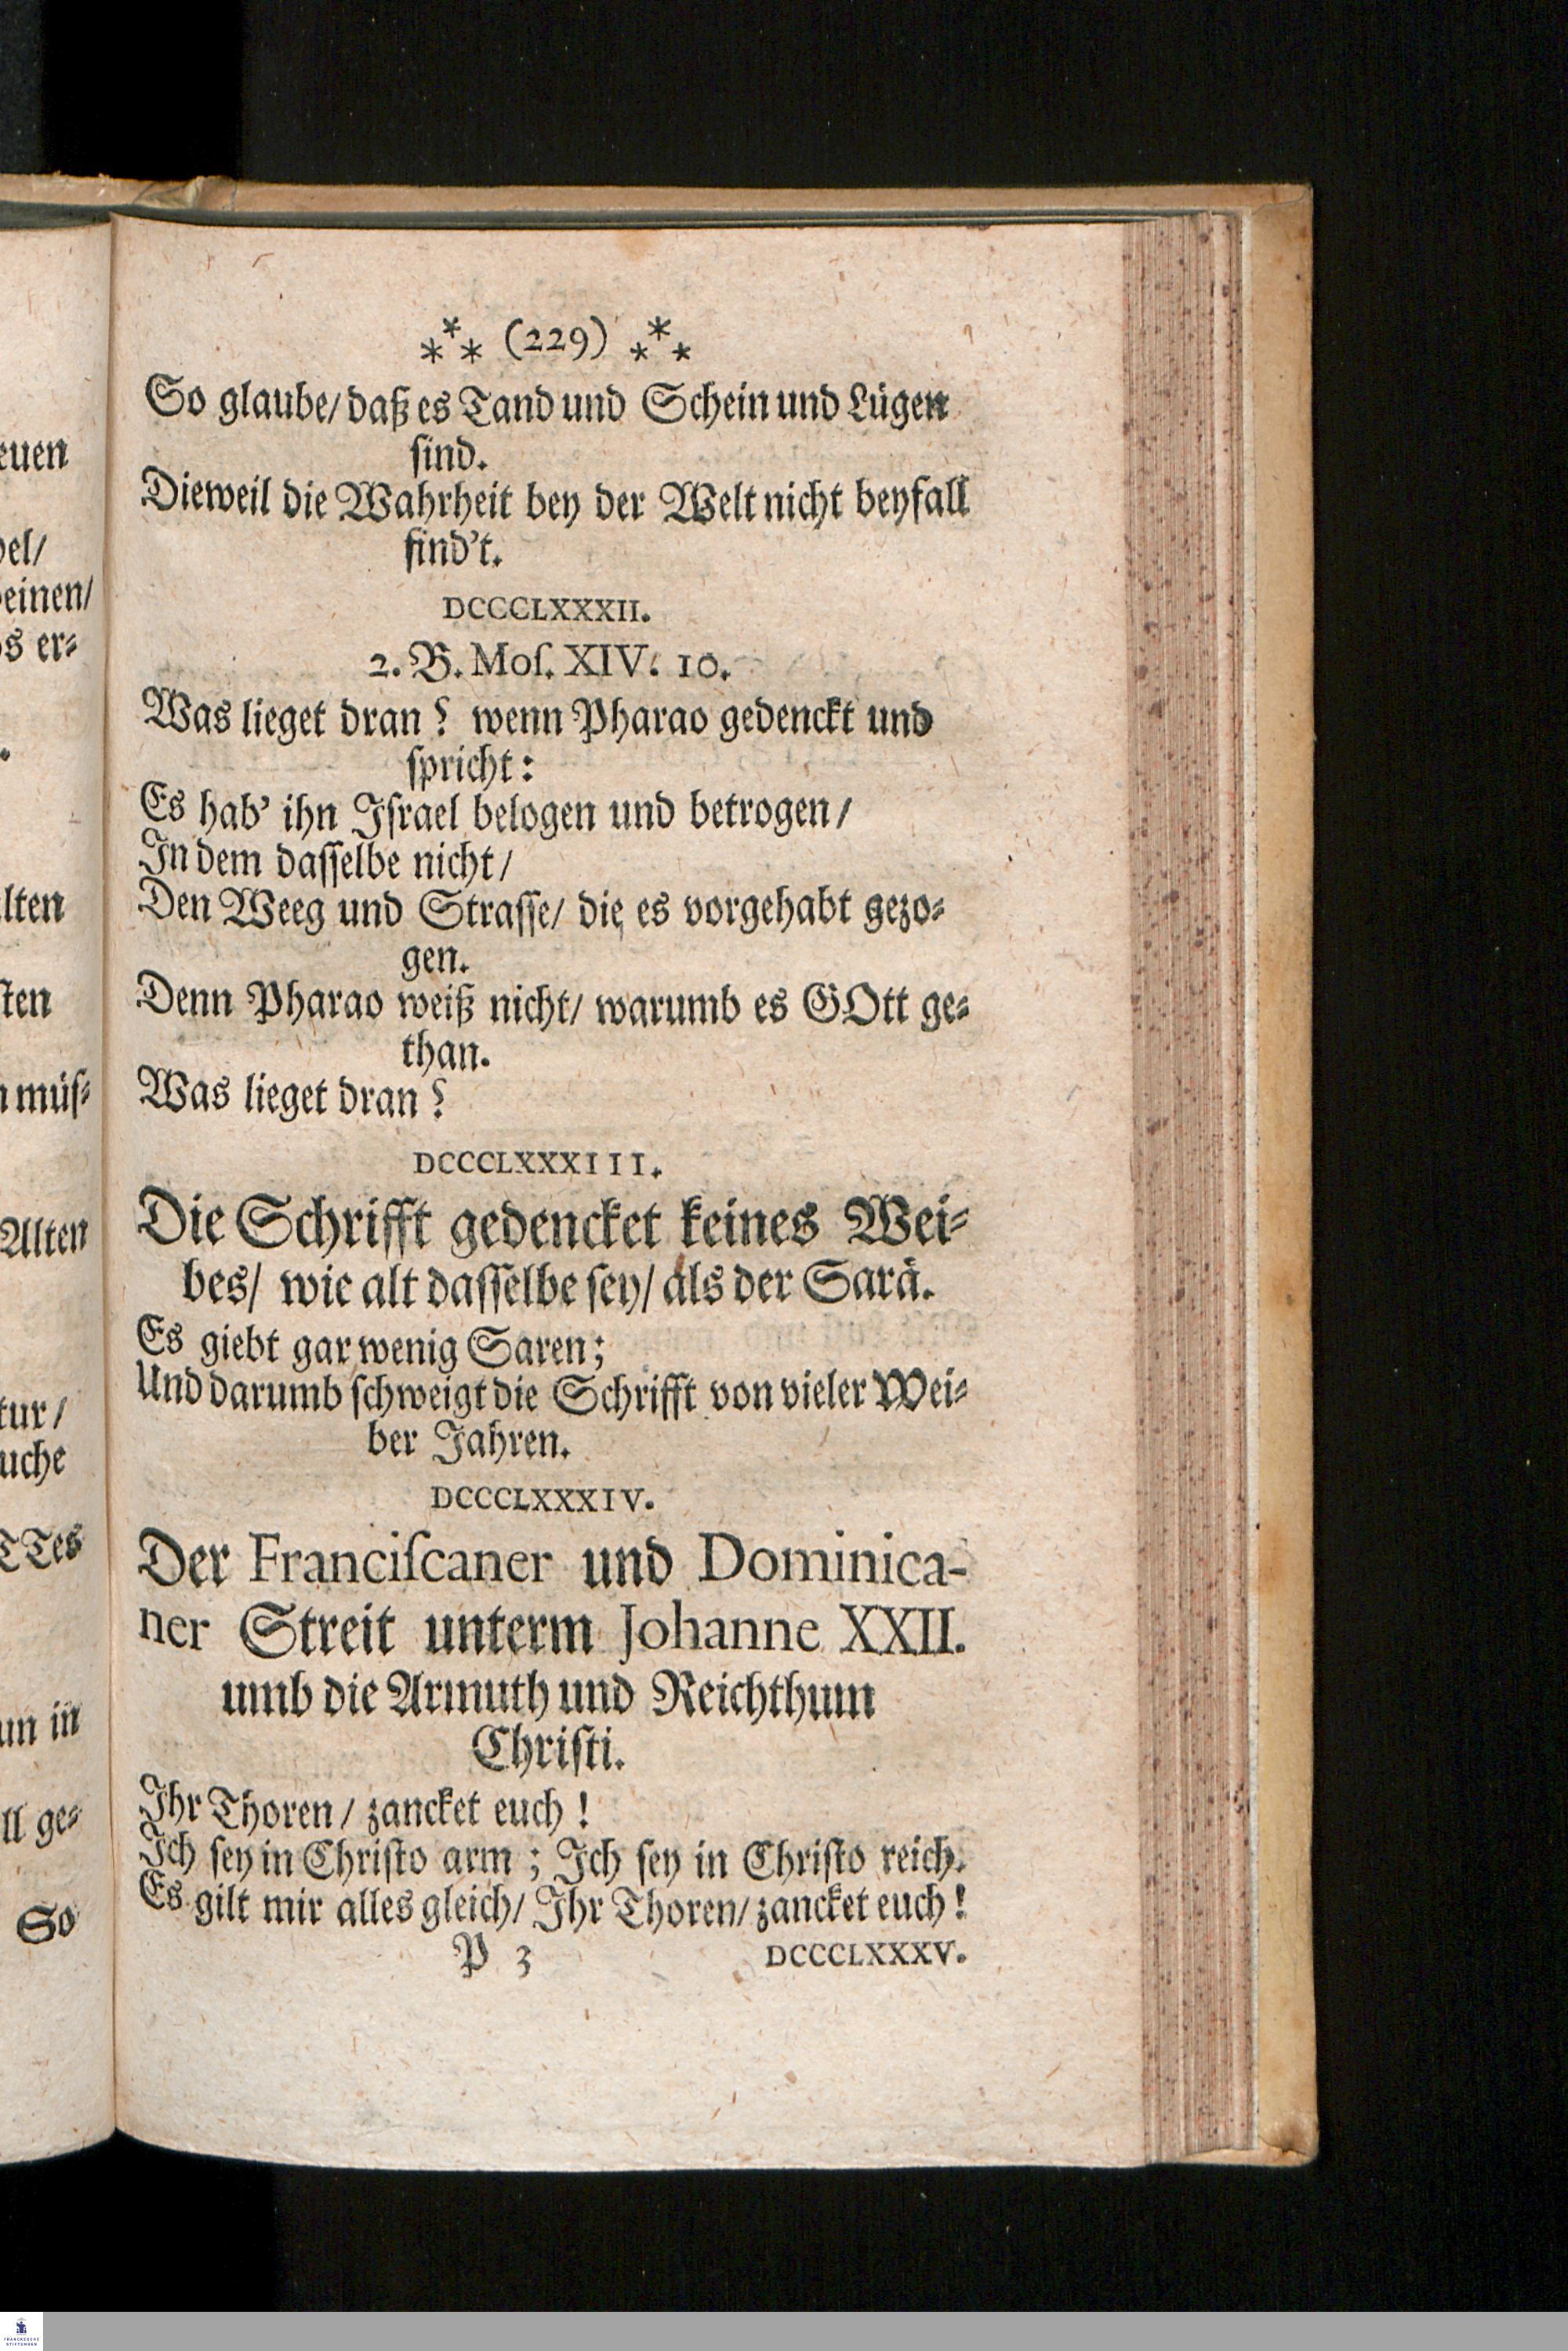 euen
einen/
s er⸗
lten
ten
müſ⸗
Alten
tur/
uche
TTes
un in
ll ge⸗
So
⁂ (229) ⁂
So glaube/ daß es Tand und Schein und Lügen
ſind.
Dieweil die Wahrheit bey der Welt nicht beyfall
find't.
DCCCLXXXII.
2. B. Moſ. XIV. 10.
Was lieget dran? wenn Pharao gedenckt und
ſpricht:
Es hab' ihn Iſrael belogen und betrogen/
In dem daſſelbe nicht/
Den Weeg und Straſſe/ die es vorgehabt gezo⸗
gen.
Denn Pharao weiß nicht/ warumb es GOtt ge⸗
than.
Was lieget dran?
DCCCLXXXIII.
Die Schrifft gedencket keines Wei⸗
bes/ wie alt daſſelbe ſey/ als der Sarä.
Es giebt gar wenig Saren;
Und darumb ſchweigt die Schrifft von vieler Wei⸗
ber Jahren.
DCCCLXXXIV.
Der Franciſcaner und Dominica-
ner Streit unterm Johanne XXII.
umb die Armuth und Reichthum
Chriſti.
Ihr Thoren/ zancket euch!
Ich ſey in Chriſto arm; Ich ſey in Chriſto reich.
Es gilt mir alles gleich/ Ihr Thoren/ zancket euch!
P 3 DCCCLXXXV.
FRANCKESCHE
STIFTUNGEN